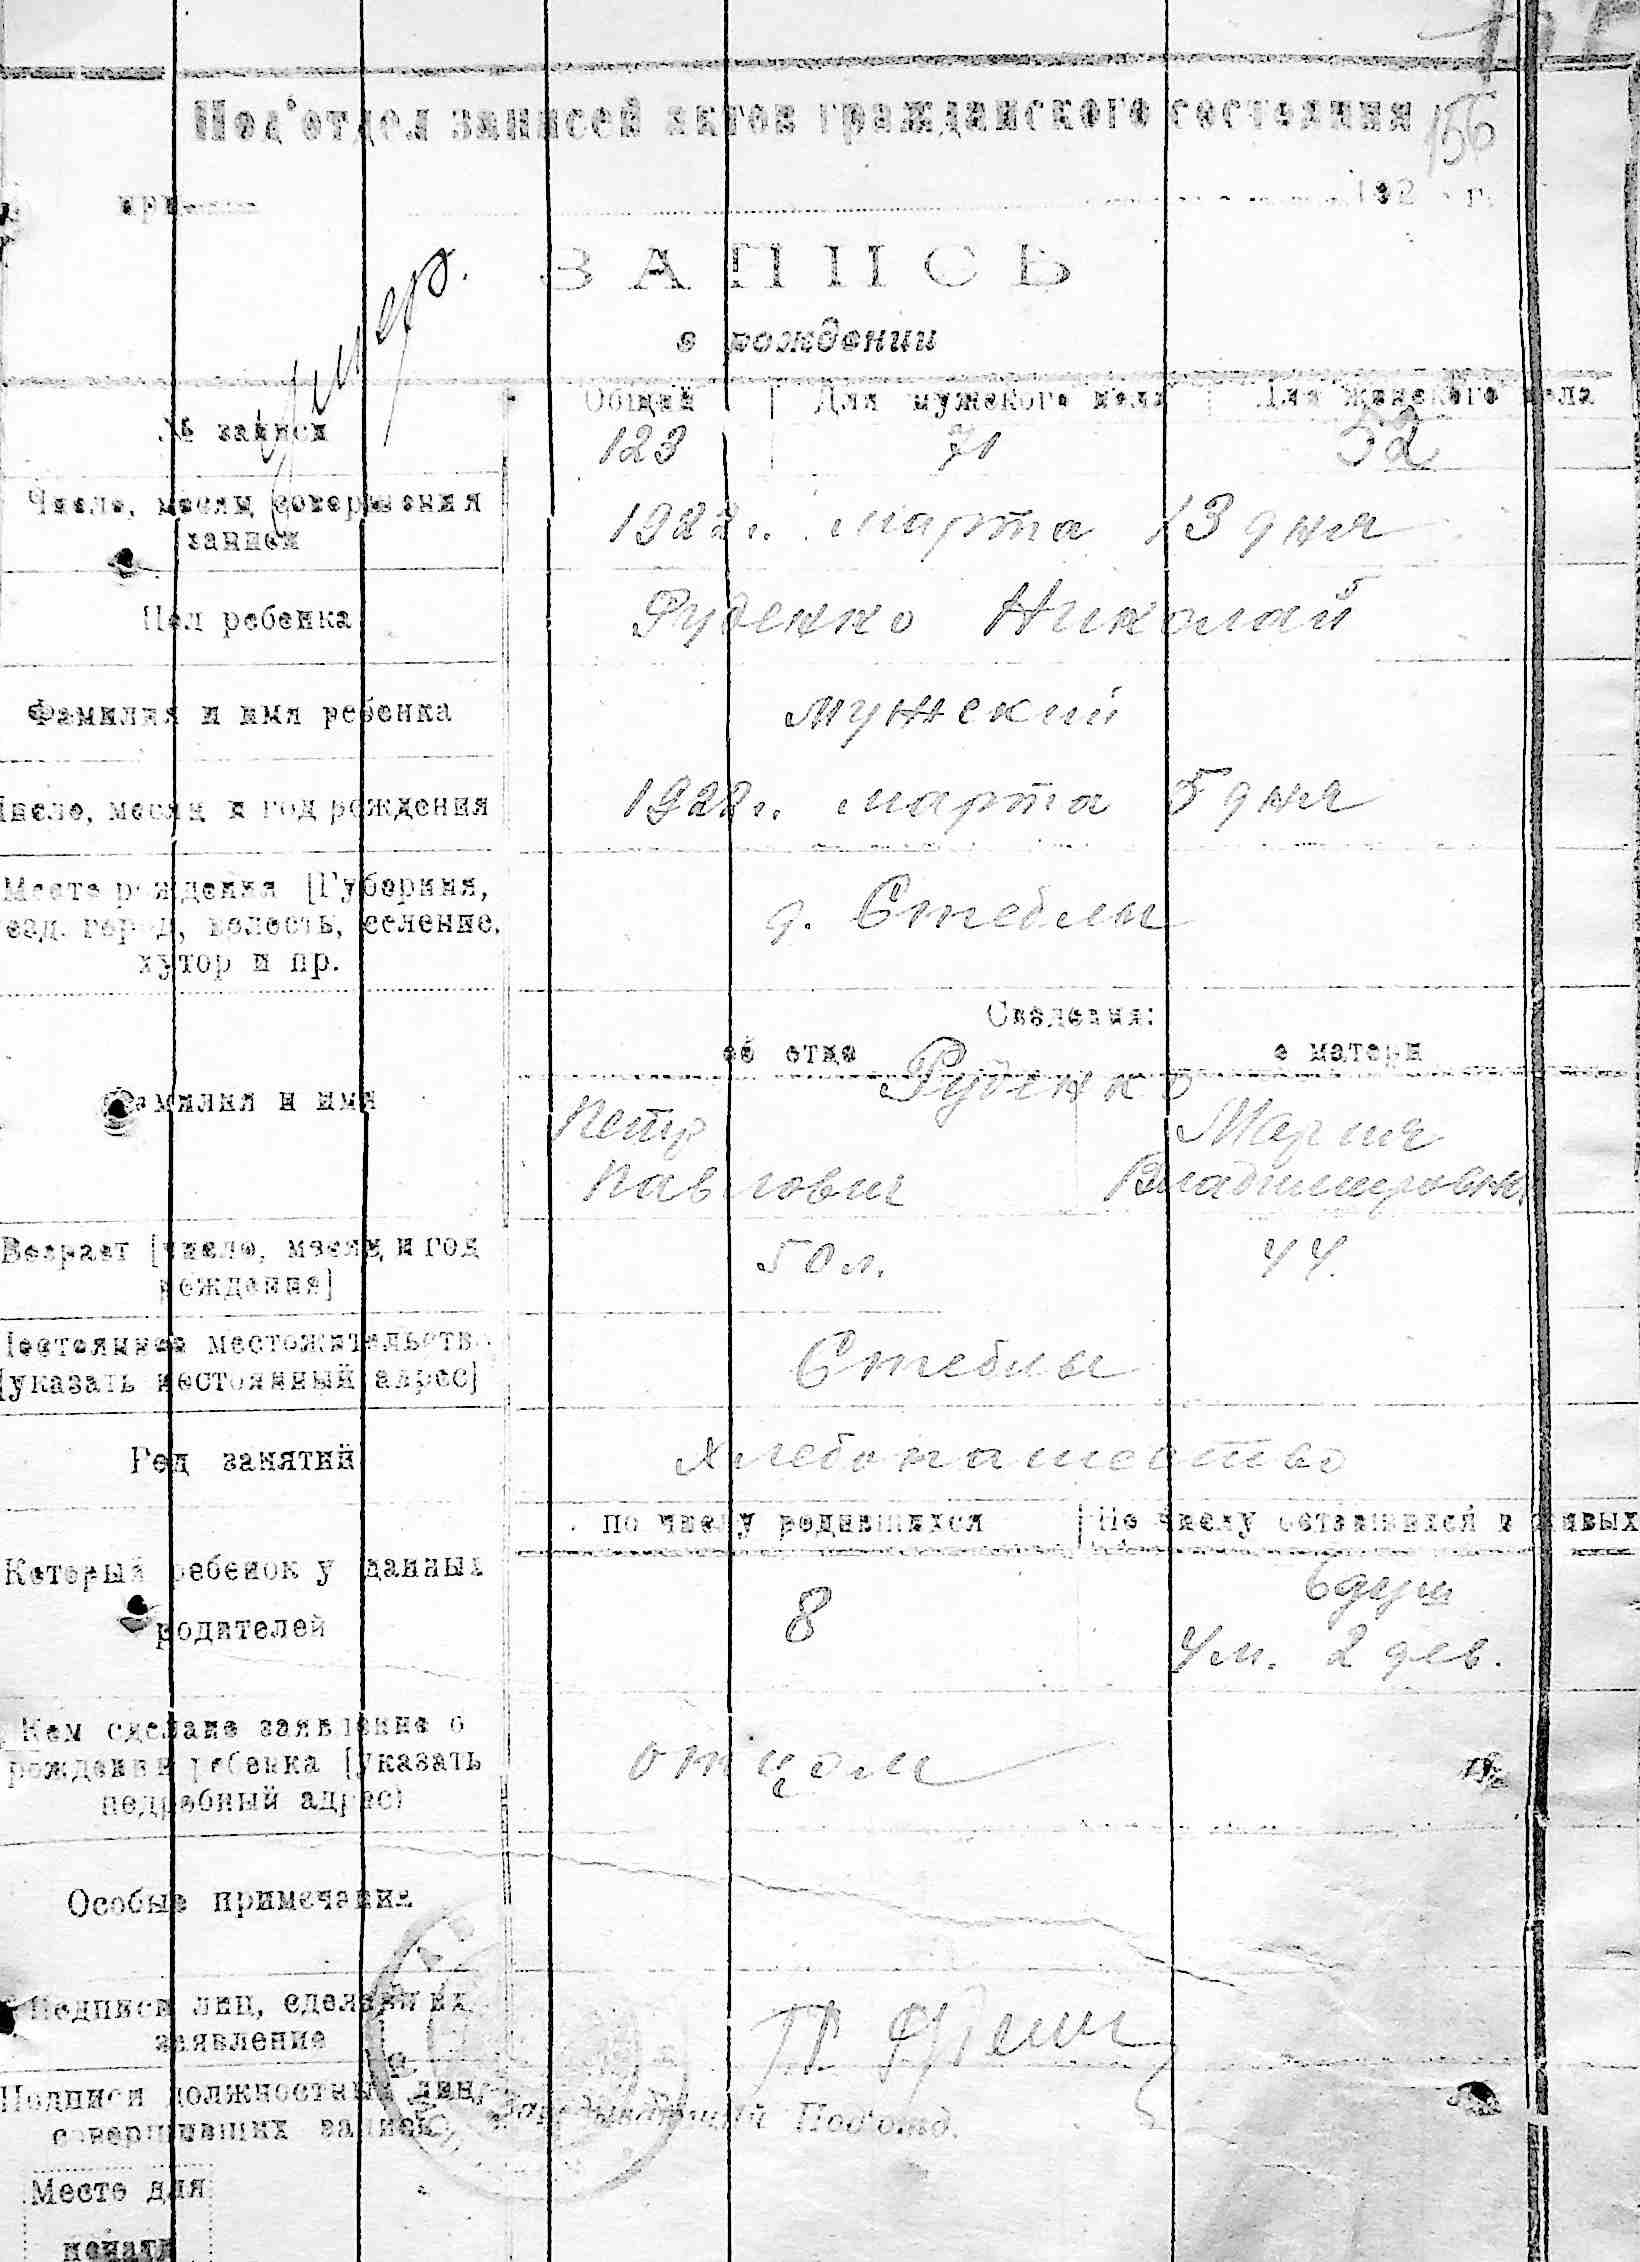 156
Под'отдел записей актов гражданского состояния
при 192 г.
умер.
ЗАПИСЬ
о рождении
№ записи
Общий Для мужского пола Для женского пола
123 71 52
Число, месяц совершения
записи
1922 г. марта 13 дня
Пол ребенка
Руденко Николай
Фамилия и имя ребенка
мужский
Число, месяц и год рождения
1922 г. марта 5 дня
Место рождения [Губерния,
езд. город, волость, селение,
хутор и пр.
д. Стеблы
Сведения:
об отце о матери
Руденко
Фамилия и имя
Петр Мария
Павлович Владимировна
Возраст [число, месяц и год
рождения]
50 л. 44.
Постоянное местожительств
[указать постоянный адрес]
Стеблы
Род занятий
Хлебопашество
по числу родившихся По числу оставшихся в живых
Который ребенок у данных
родителей
8
6 душ
4 м. 2 дев.
Кем сделано заявление о
рождении ребенка [указать
подробный адрес)
отцом
Особые примечания
Подписи лиц, сделавших
заявление
Подписи должностных лиц,
совершивших записи
Заведывающий Подотд.
Место для
печати